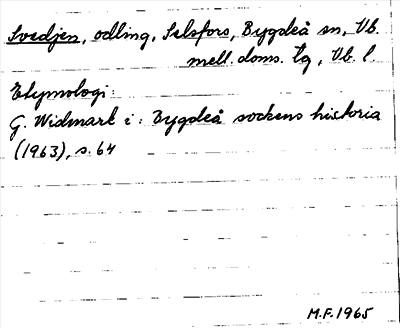 Svedjen, odling, Selsfors, Bygdeå sn, Vb.
mell. doms. tg, Vb. l.
Etymologi:
G. Widmark i: Bygdeå sockens historia
(1963), s. 64
M.F. 1965